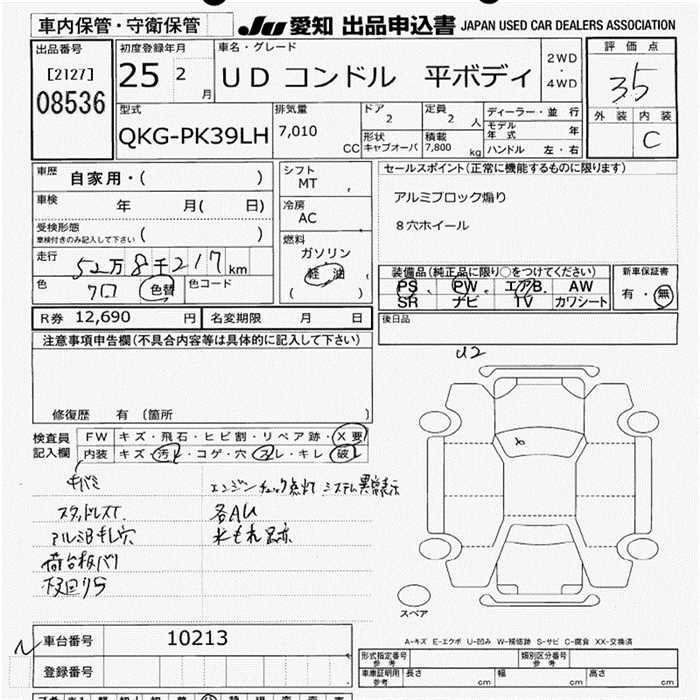 車内保管・守衛保管
JU 愛知 出品申込書 JAPAN USED CAR DEALERS ASSOCIATION
出品番号
[2127]
08536
初度登録年月
25 2 月
車名・グレード
UD コンドル 平ボディ
2WD
・
4WD
評価点
3.5
外装 内装
C
型式
QKG-PK39LH
排気量
7,010 CC
ドア
2
定員
2 人
形状
キャブオーバ
積載
7,800 kg
ディーラー・並行
モデル年式 年
ハンドル 左・右
車歴 自家用・( )
車検 年 月( 日)
受検形態
車検付きのみ記入して下さい ( )
走行 52万8千217km
色 色替 色コード
シフト
MT
冷房
AC
燃料
ガソリン
軽油
( )
セールスポイント(正常に機能するものに限ります)
アルミブロック煽り
8穴ホイール
装備品(純正品に限り○をつけてください)
PS PW エアB. AW
SR ナビ TV カワシート
新車保証書
有・無
R券 12,690 円 名変期限 月 日
後日品
注意事項申告欄(不具合内容等は具体的に記入して下さい)
修復歴 有 (箇所 )
検査員記入欄
FW キズ・飛石・ヒビ割・リペア跡・X要
内装 キズ・汚レ・コゲ・穴・スレ・キレ・破レ
キバミ
スタッドレスT
アルミBキレ穴
荷台板バリ
エンジンチェック点灯 システム異常表示
各AU
水もれ跡
U2
スペア
A-キズ E-エクボ U-凹み W-補修跡 S-サビ C-腐食 XX-交換済
車台番号 10213
登録番号
型式指定番号 参考
類別区分番号 参考
車庫証明用 参考 長さ cm 幅 cm 高さ cm